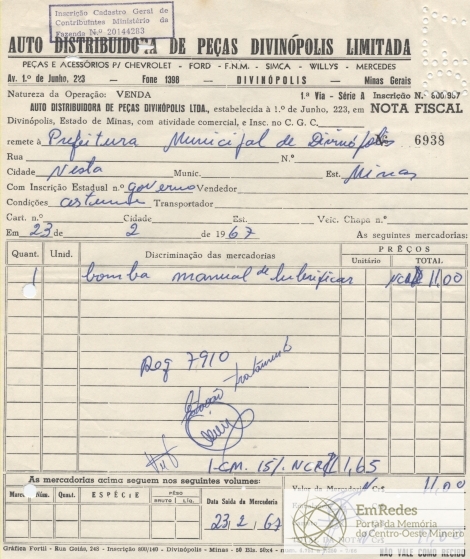 Inscrição Cadastro Geral de
Contribuintes Ministério da
Fazenda N.º 20144283
AUTO DISTRIBUIDORA DE PEÇAS DIVINÓPOLIS LIMITADA
PEÇAS E ACESSÓRIOS P/ CHEVROLET - FORD - F.N.M. - SIMCA - WILLYS - MERCEDES
Av. 1.º de Junho, 223 — Fone 1398 — DIVINÓPOLIS — Minas Gerais
Natureza da Operação: VENDA 1.ª Via - Série A Inscrição N.º
AUTO DISTRIBUIDORA DE PEÇAS DIVINÓPOLIS LTDA., estabelecida à 1.º de Junho, 223, em NOTA FISCAL
Divinópolis, Estado de Minas, com atividade comercial, e Insc. no C. G. C.
remete à Prefeitura Municipal de Divinópolis Nº 6938
Rua N.º
Cidade Nesta Munic. Est. Minas
Com Inscrição Estadual n.º governo Vendedor
Condições Transportador
Cart. n.º Cidade Est. Veic. Chapa n.º
Em 23 de 2 de 1967 As seguintes mercadorias:
Quant. Unid. Discriminação das mercadorias PREÇOS
Unitário TOTAL
1 bomba manual de lubrificar NCR$ 11,00
Req 7910
I.C.M. 15% NCR$ 1,65
As mercadorias acima seguem nos seguintes volumes: Valor da Mercadoria 11,00
Marca Núm. Quant. ESPÉCIE PÊSO
BRUTO LIQ.
Data Saída da Mercadoria
23 2 67
EmRedes
Portal da Memória
do Centro-Oeste Mineiro
Gráfica Forti - Rua Goiás, 248 - Inscrição 800/140 - Divinópolis - Minas
NÃO VALE COMO RECIBO